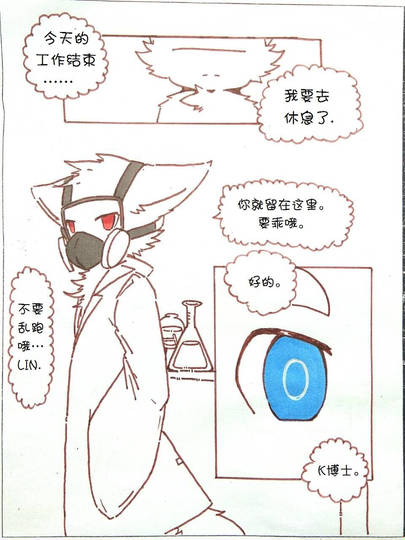 今天的
工作结束
……
我要去
休息了.
你就留在这里。
要乖哦。
好的。
不要
乱跑
哦…
LIN.
K博士。